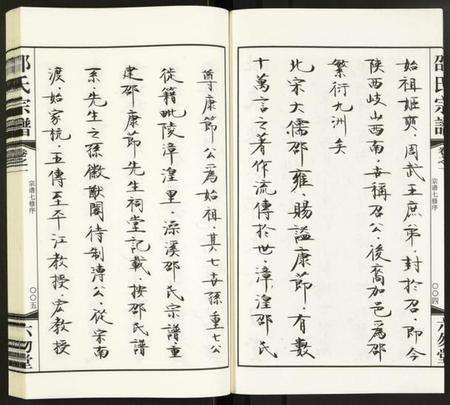 邵氏宗譜
宗譜七修序
〇〇四
六勿堂
始祖姬奭，周武王庶弟，封於召，即今
陝西岐山西南，告稱召公，後裔加邑為邵
繁衍九洲矣
北宋大儒邵雍，賜謚康節，有數
十萬言之著作流傳於世，漳湟邵氏
尊康節公為始祖，其七世孫重七公
徙籍毗陵漳湟里，深溪邵氏宗譜，重
建邵康節先生祠堂記載，按邵氏譜
系先生之孫徽猷閣待制溥公，從宋南
渡，始家杭，五傳至平江教授宏教授
邵氏宗譜
卷之
宗譜七修序
〇〇五
六勿堂